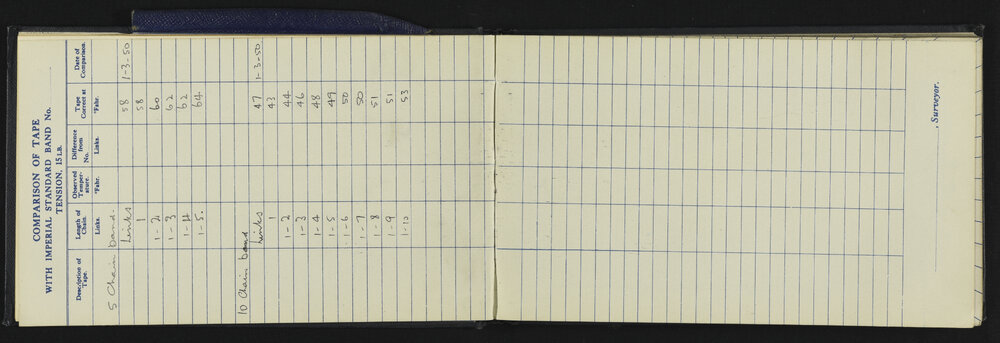 COMPARISON OF TAPE
WITH IMPERIAL STANDARD BAND No.
TENSION, 15 LB.
Description of Tape. Length of Chain. Observed Temperature. Difference from No. Tape Correct at Date of Comparison.
Links. °Fahr. Links. °Fahr.
5 Chain band.
Links 58 1-3-50
1 58
1-2 60
1-3 62
1-4 62
1-5. 64
10 Chain band
Links 47 1-3-50
1 43
1-2 44
1-3 46
1-4 48
1-5 49
1-6 50
1-7 50
1-8 51
1-9 51
1-10 53
, Surveyor.